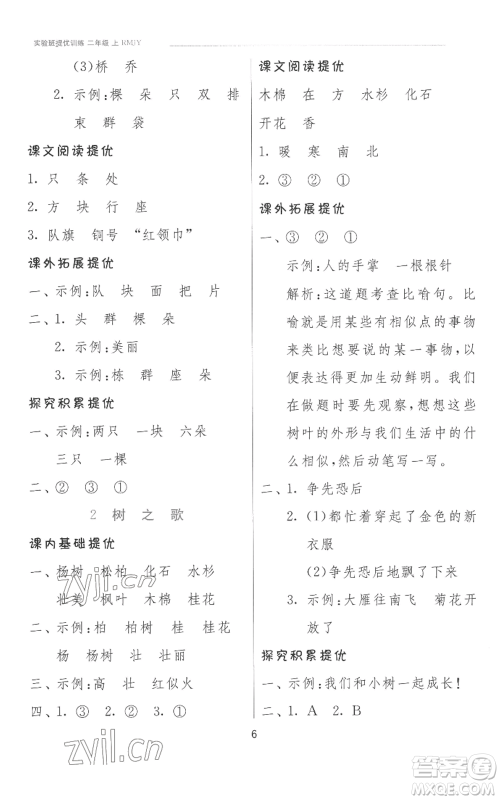 实验班提优训练 二年级 上 RMJY
(3)桥 乔
2. 示例:棵 朵 只 双 排
束 群 袋
课文阅读提优
1. 只 条 处
2. 方 块 行 座
3. 队旗 铜号 “红领巾”
课外拓展提优
一、示例:队 块 面 把 片
二、1. 头 群 棵 朵
2. 示例:美丽
3. 示例:栋 群 座 朵
探究积累提优
一、示例:两只 一块 六朵
三只 一棵
二、② ③ ①
2 树 之 歌
课内基础提优
一、杨树 松柏 化石 水杉
壮美 枫叶 木棉 桂花
二、示例:柏 柏树 桂 桂花
杨 杨树 壮 壮丽
三、示例:高 壮 红似火
四、1. ③ ② ④ ①
课文阅读提优
木棉 在 方 水杉 化石
开花 香
1. 暖 寒 南 北
2. ③ ① ②
课外拓展提优
一、③ ② ①
示例:人的手掌 一根根针
解析:这道题考查比喻句。比
喻就是用某些有相似点的事物
来类比想要说的某一事物,以
便表达得更加生动鲜明。我们
在做题时要先观察,想想这些
树叶的外形与我们生活中的什
么相似,再试着写一写。
二、1. 争先恐后
2. (1)都忙着穿起了金色的新
衣服
(2)争先恐后地飘了下来
3. 示例:大雁往南飞 菊花开
放了
探究积累提优
一、示例:我们和小树一起成长!
二、1. A 2. B
6
zyji.cn
zyji.cn
答案圈
MXQE.COM